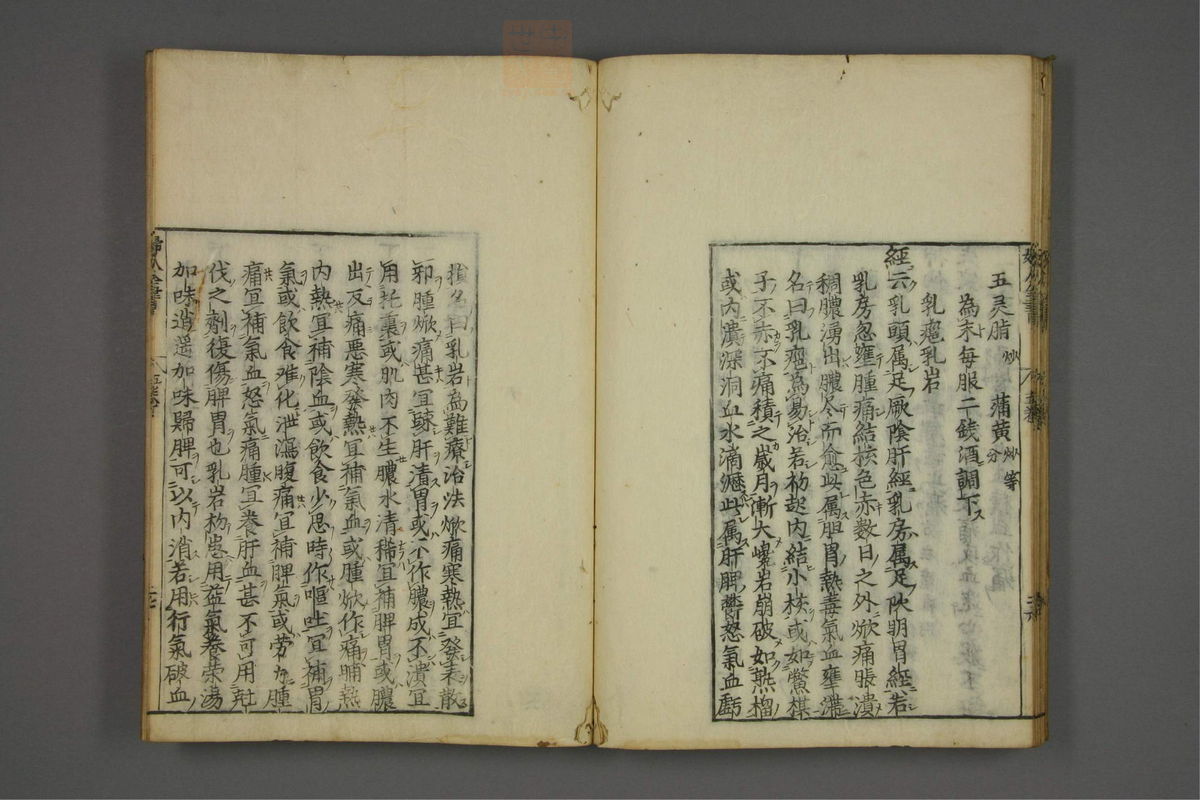 五灵脂炒 蒲黃炒等分
為末每服二錢酒調下
乳癰乳岩
經云乳頭属足厥陰肝經乳房属足陽明胃經若
乳房忽壅腫痛結核色赤数日之外焮痛脹潰
稠膿湧出膿尽而愈此属胆胃熱毒氣血壅滞
名曰乳癰為易治若初起内結小核或如鱉棋
子不赤不痛積之歲月漸大巉岩崩破如熟榴
或内潰深洞血水滴瀝此属肝脾欝怒氣血虧
損名曰乳岩為難療治法焮痛寒熱宜發表散
邪腫焮痛甚宜疎肝清胃或不作膿成不潰宜
用托裏或肌肉不生膿水清稀宜補脾胃或膿
出反痛悪寒發熱宜補氣血或腫焮作痛晡熱
内熱宜補陰血或飲食少思時作嘔吐宜補胃
氣或飲食难化泄瀉腹痛宜補脾氣或劳力腫
痛宜補氣血怒氣痛腫宜養肝血甚不可用尅
伐之劑復傷脾胃也乳岩初患用益氣養荣湯
加味逍遥加味歸脾可以内消若用行氣破血